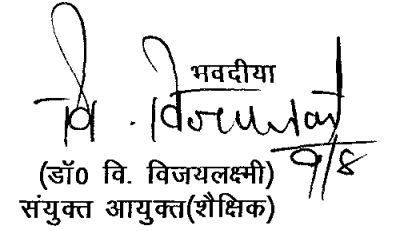 भवदीया
वि. विजयलक्ष्मी
9/8
(डॉ0 वि. विजयलक्ष्मी)
संयुक्त आयुक्त(शैक्षिक)